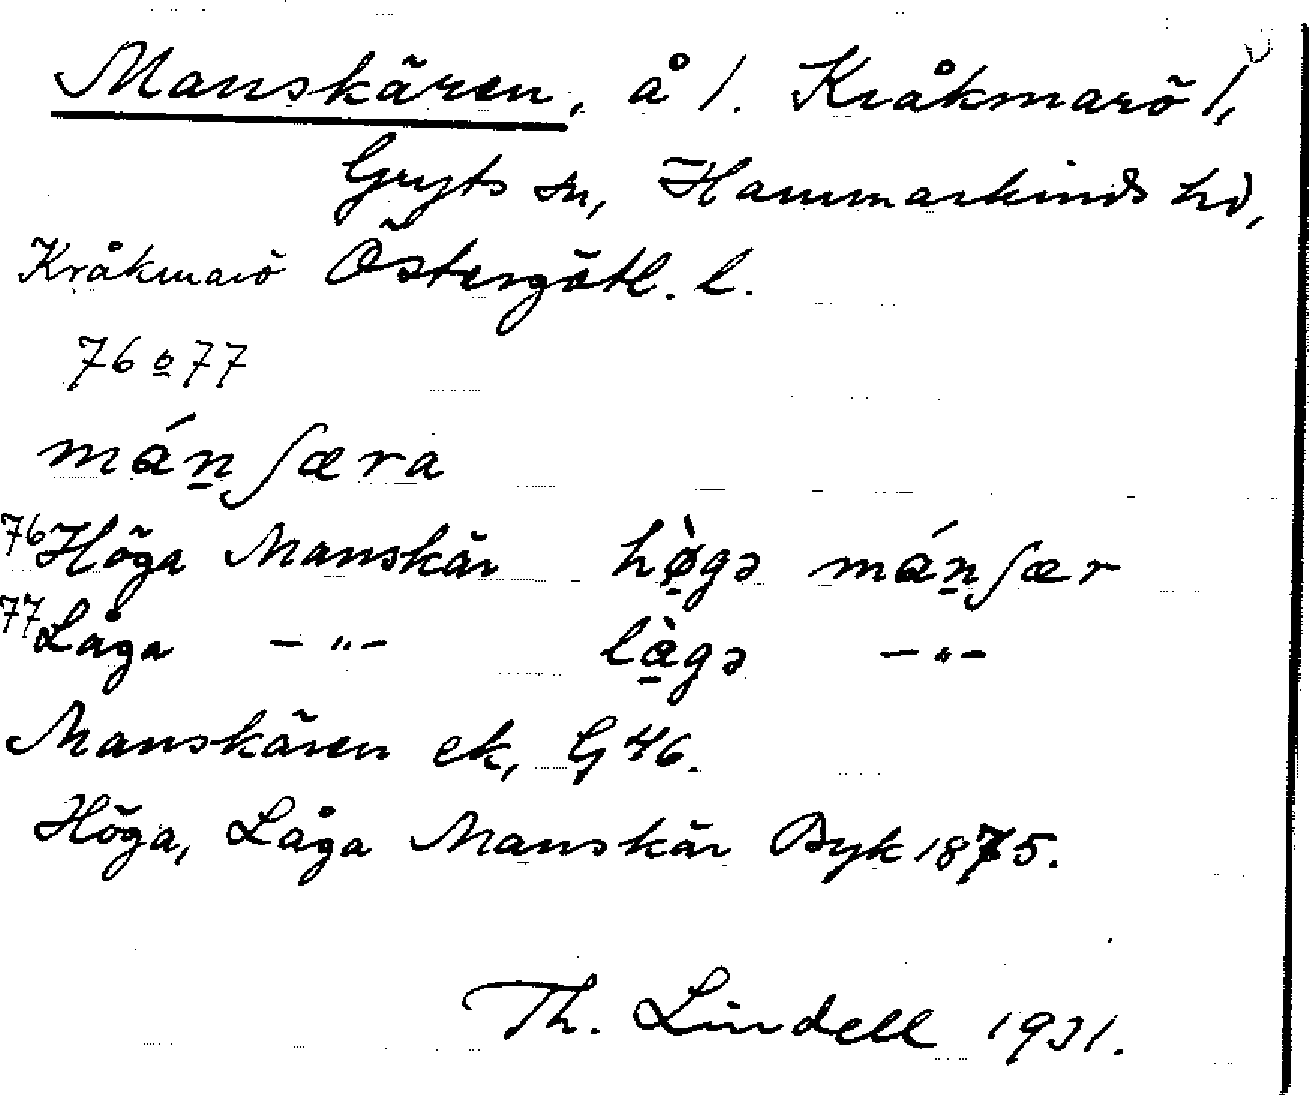 Manskären, å l. Kråkmarö l,
Gryts sn, Hammarkinds hd,
Kråkmarö Östergötl. l.
76 o 77
mán̲ʃæra
76 Höga Manskär hø̲̀gə mán̲ʃær
77 Låga – " – là̲gə – " –
Manskären ek, G 46.
Höga, Låga Manskär Byk 1875.
Th. Lindell 1931.